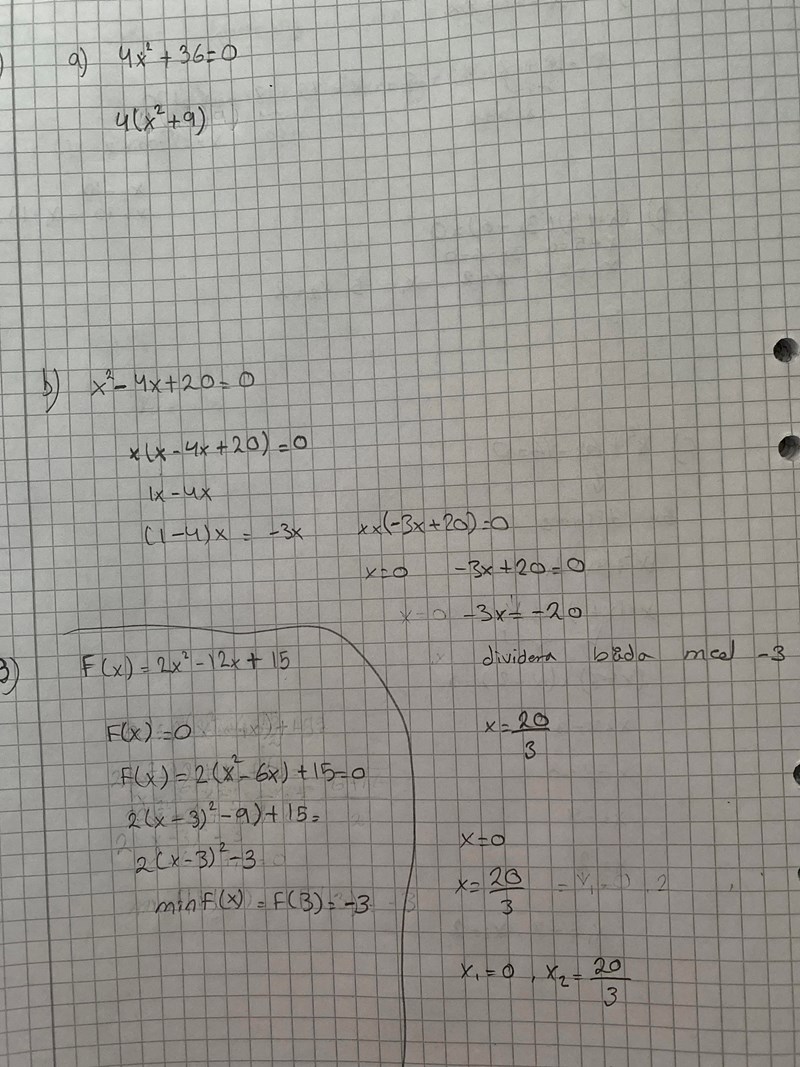 a) 4x² + 36 = 0
4(x² + 9)
b) x² - 4x + 20 = 0
x(x - 4x + 20) = 0
1x - 4x
(1-4)x = -3x
xx(-3x + 20) = 0
x = 0 -3x + 20 = 0
x = 0 -3x = -20
dividera båda med -3
x = 20/3
x = 0
x = 20/3
x₁ = 0, x₂ = 20/3
3) F(x) = 2x² - 12x + 15
F(x) = 0
F(x) = 2(x² - 6x) + 15 = 0
2(x - 3)² - 9) + 15 =
2(x - 3)² - 3
min F(x) = F(3) = -3